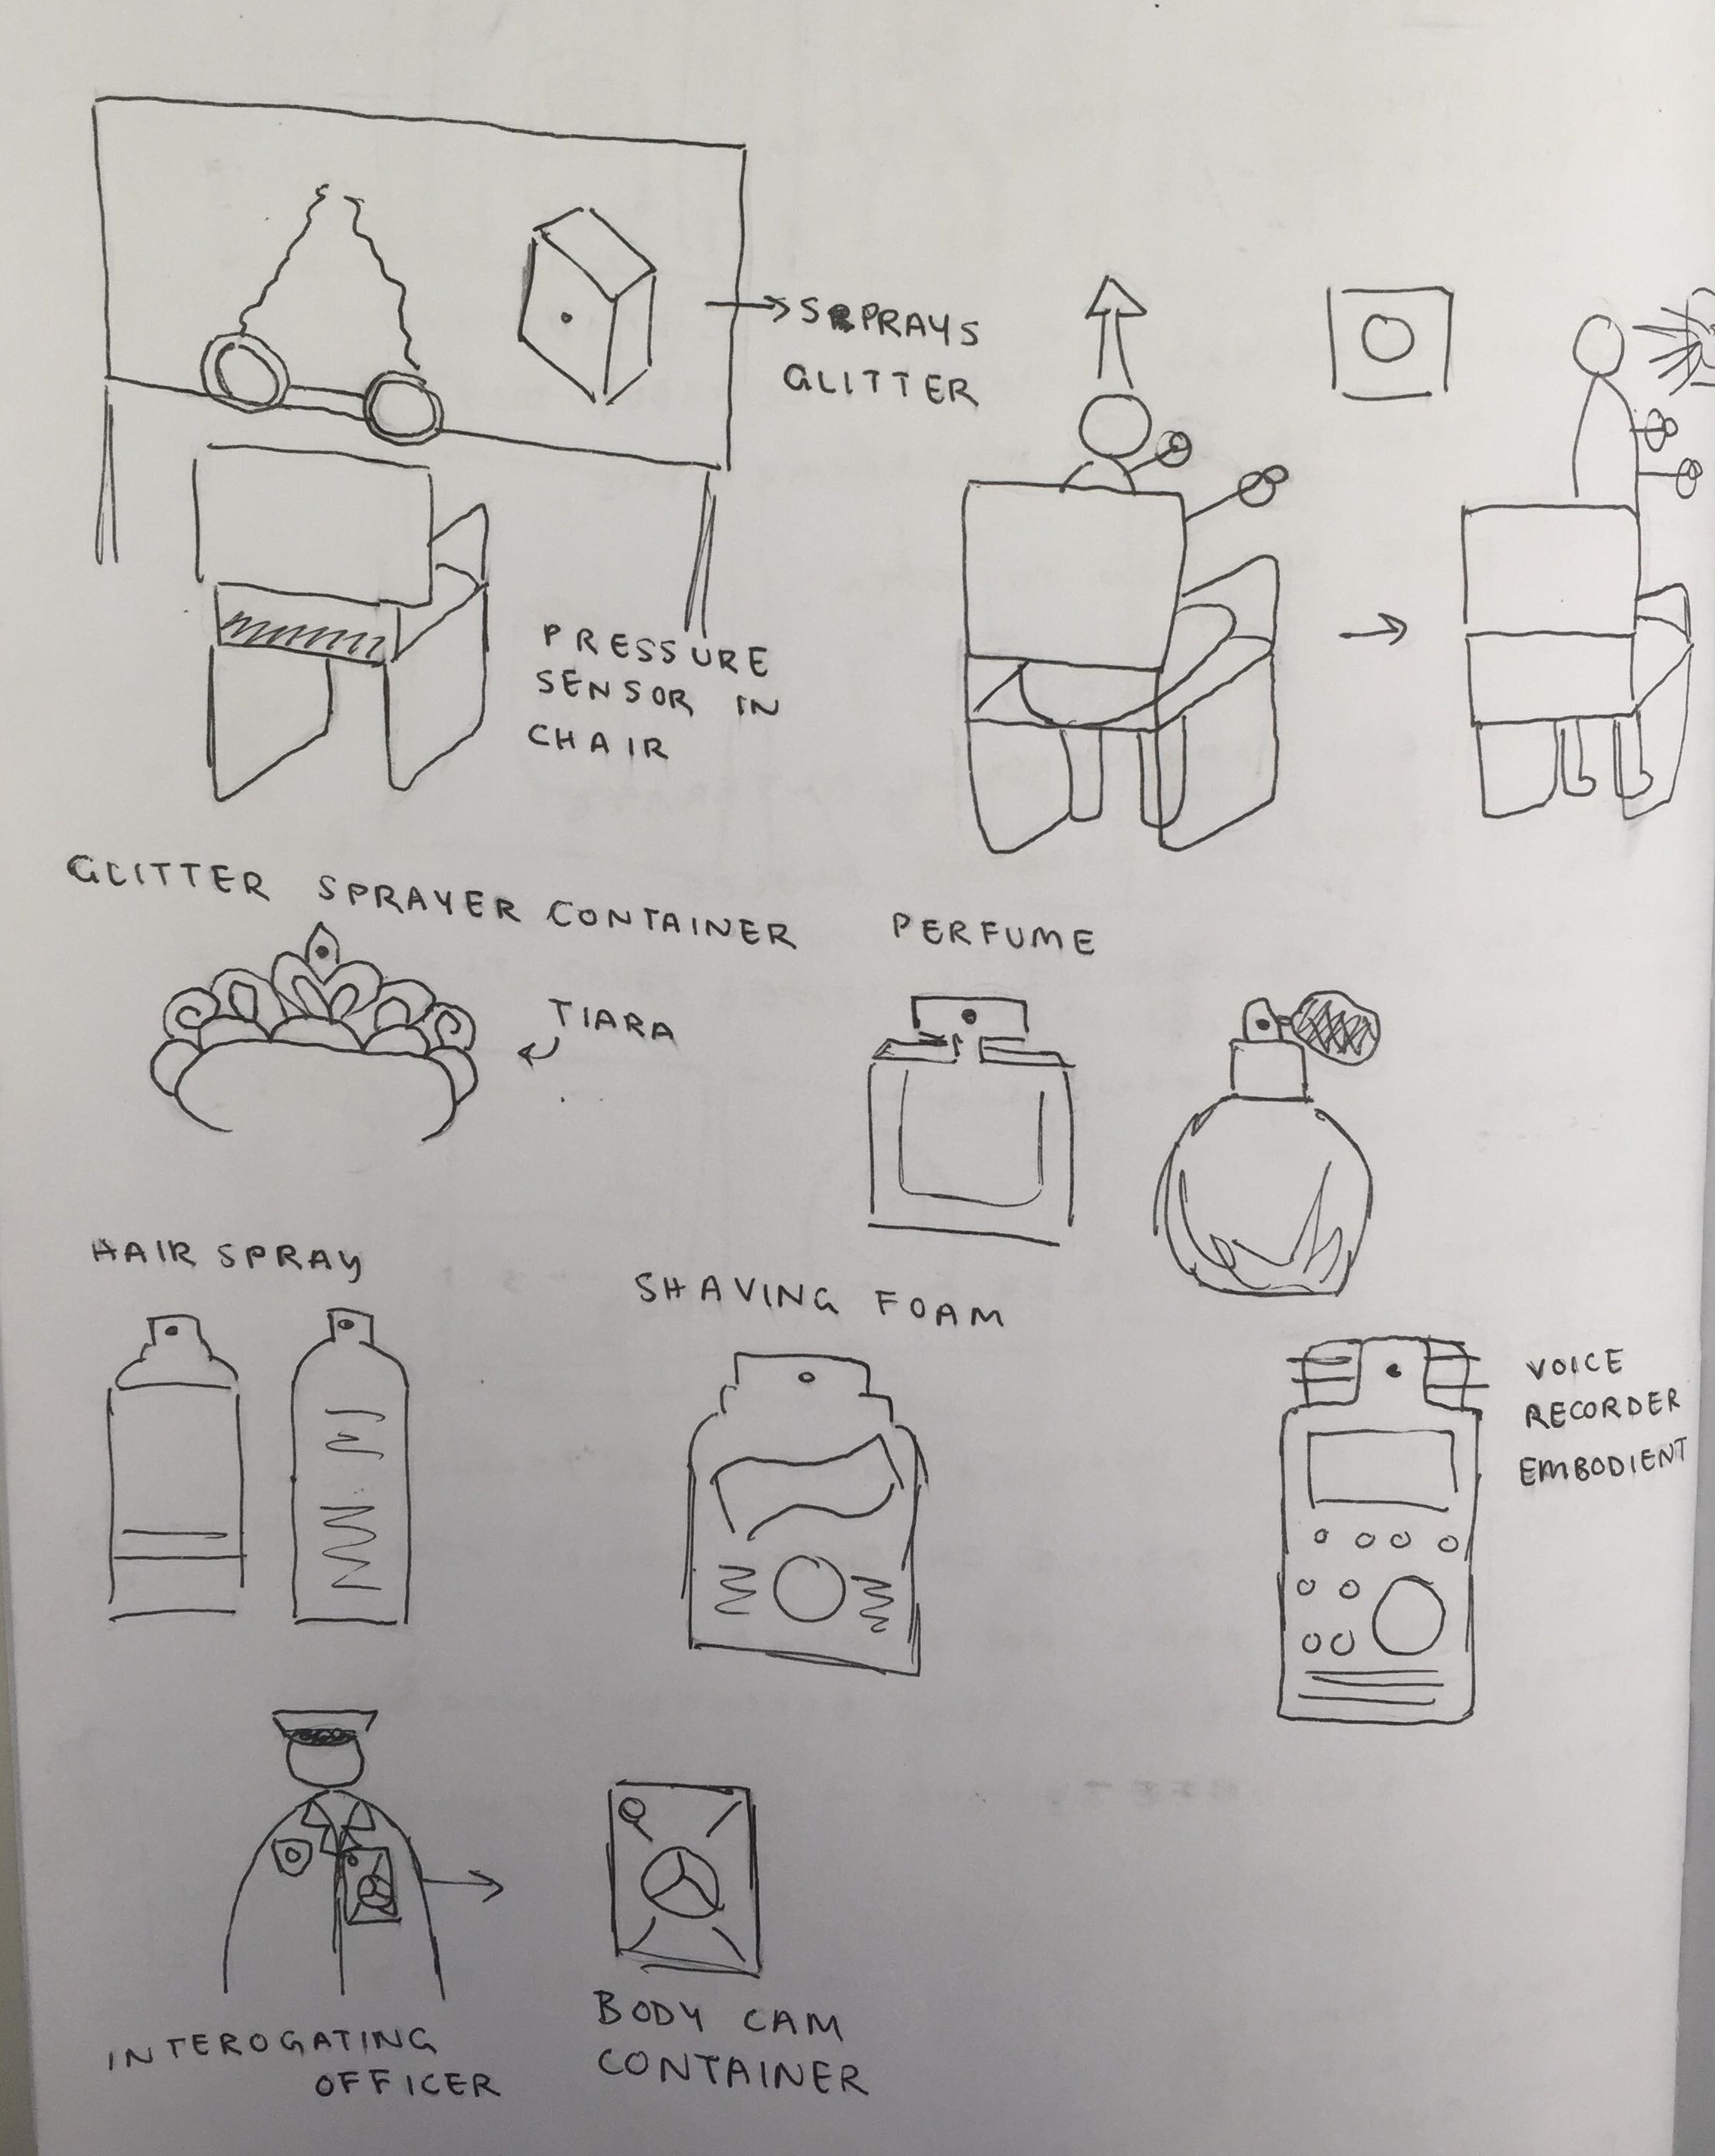 SPRAYS
GLITTER
PRESSURE
SENSOR IN
CHAIR
GLITTER SPRAYER CONTAINER
PERFUME
TIARA
HAIR SPRAY
SHAVING FOAM
VOICE
RECORDER
EMBODIENT
INTEROGATING
OFFICER
BODY CAM
CONTAINER